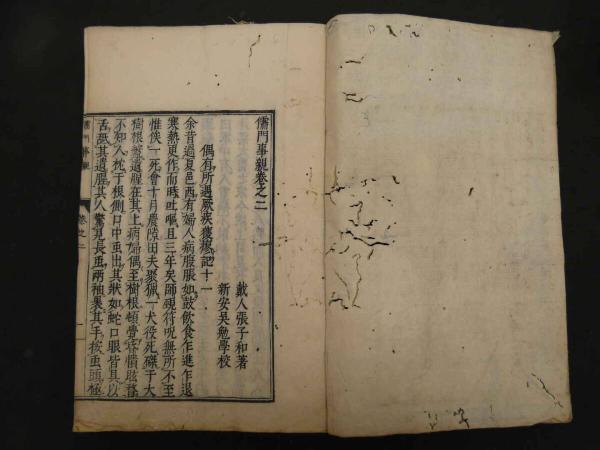 儒門事親卷之二
戴人張子和著
新安吳勉學校
偶有所遇厥疾獲瘳記十一
余昔過夏邑西有婦人病腹脹如鼓飲食乍進乍退
寒熱更作而時吐嘔且三年矣師覡符呪無所不至
惟俟一死會十月農隙田夫聚獵一犬役死磔于大
樹根盤遺腥在其上病婦偶至樹根頓覺昏憒眩瞀
不知人枕于根側口中虫出其狀如蛇口眼皆具以
舌舐其遺腥其人驚見長虫兩袖裹其手按虫頭極
儒門事親
卷之二
一